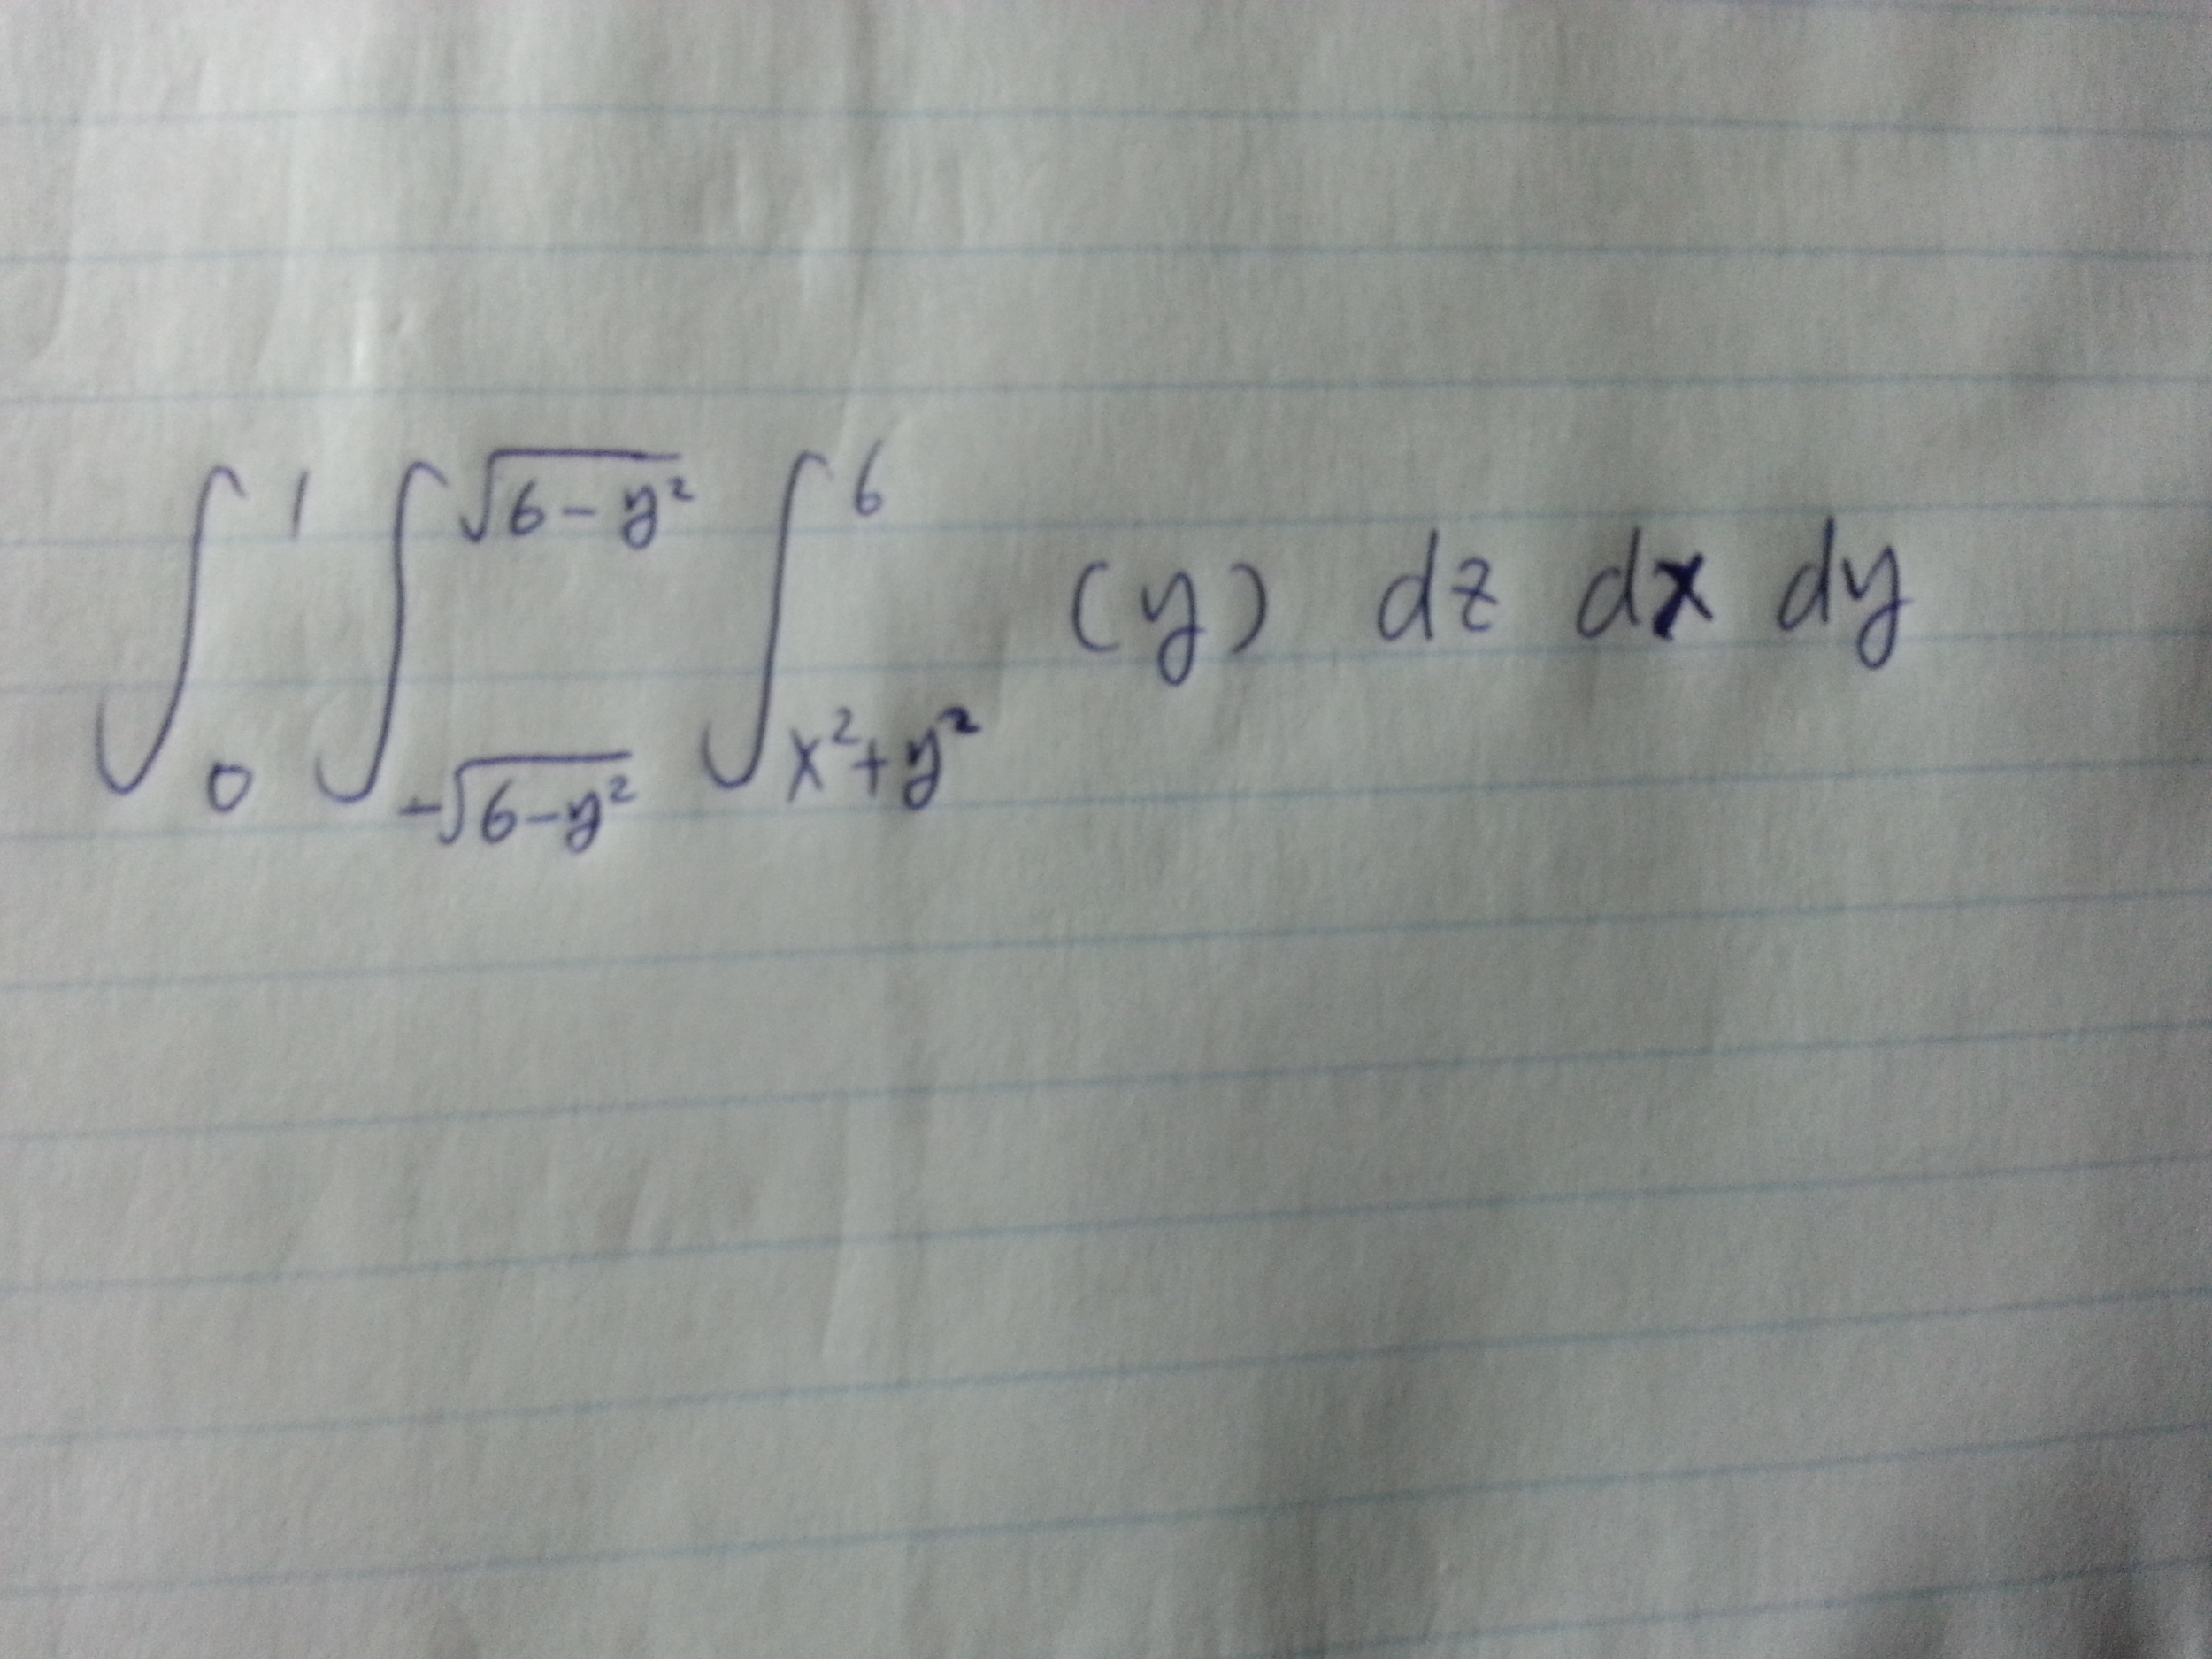 ∫₀¹ ∫_{-√(6-y²)}^{√(6-y²)} ∫_{x²+y²}^{6} (y) dz dx dy